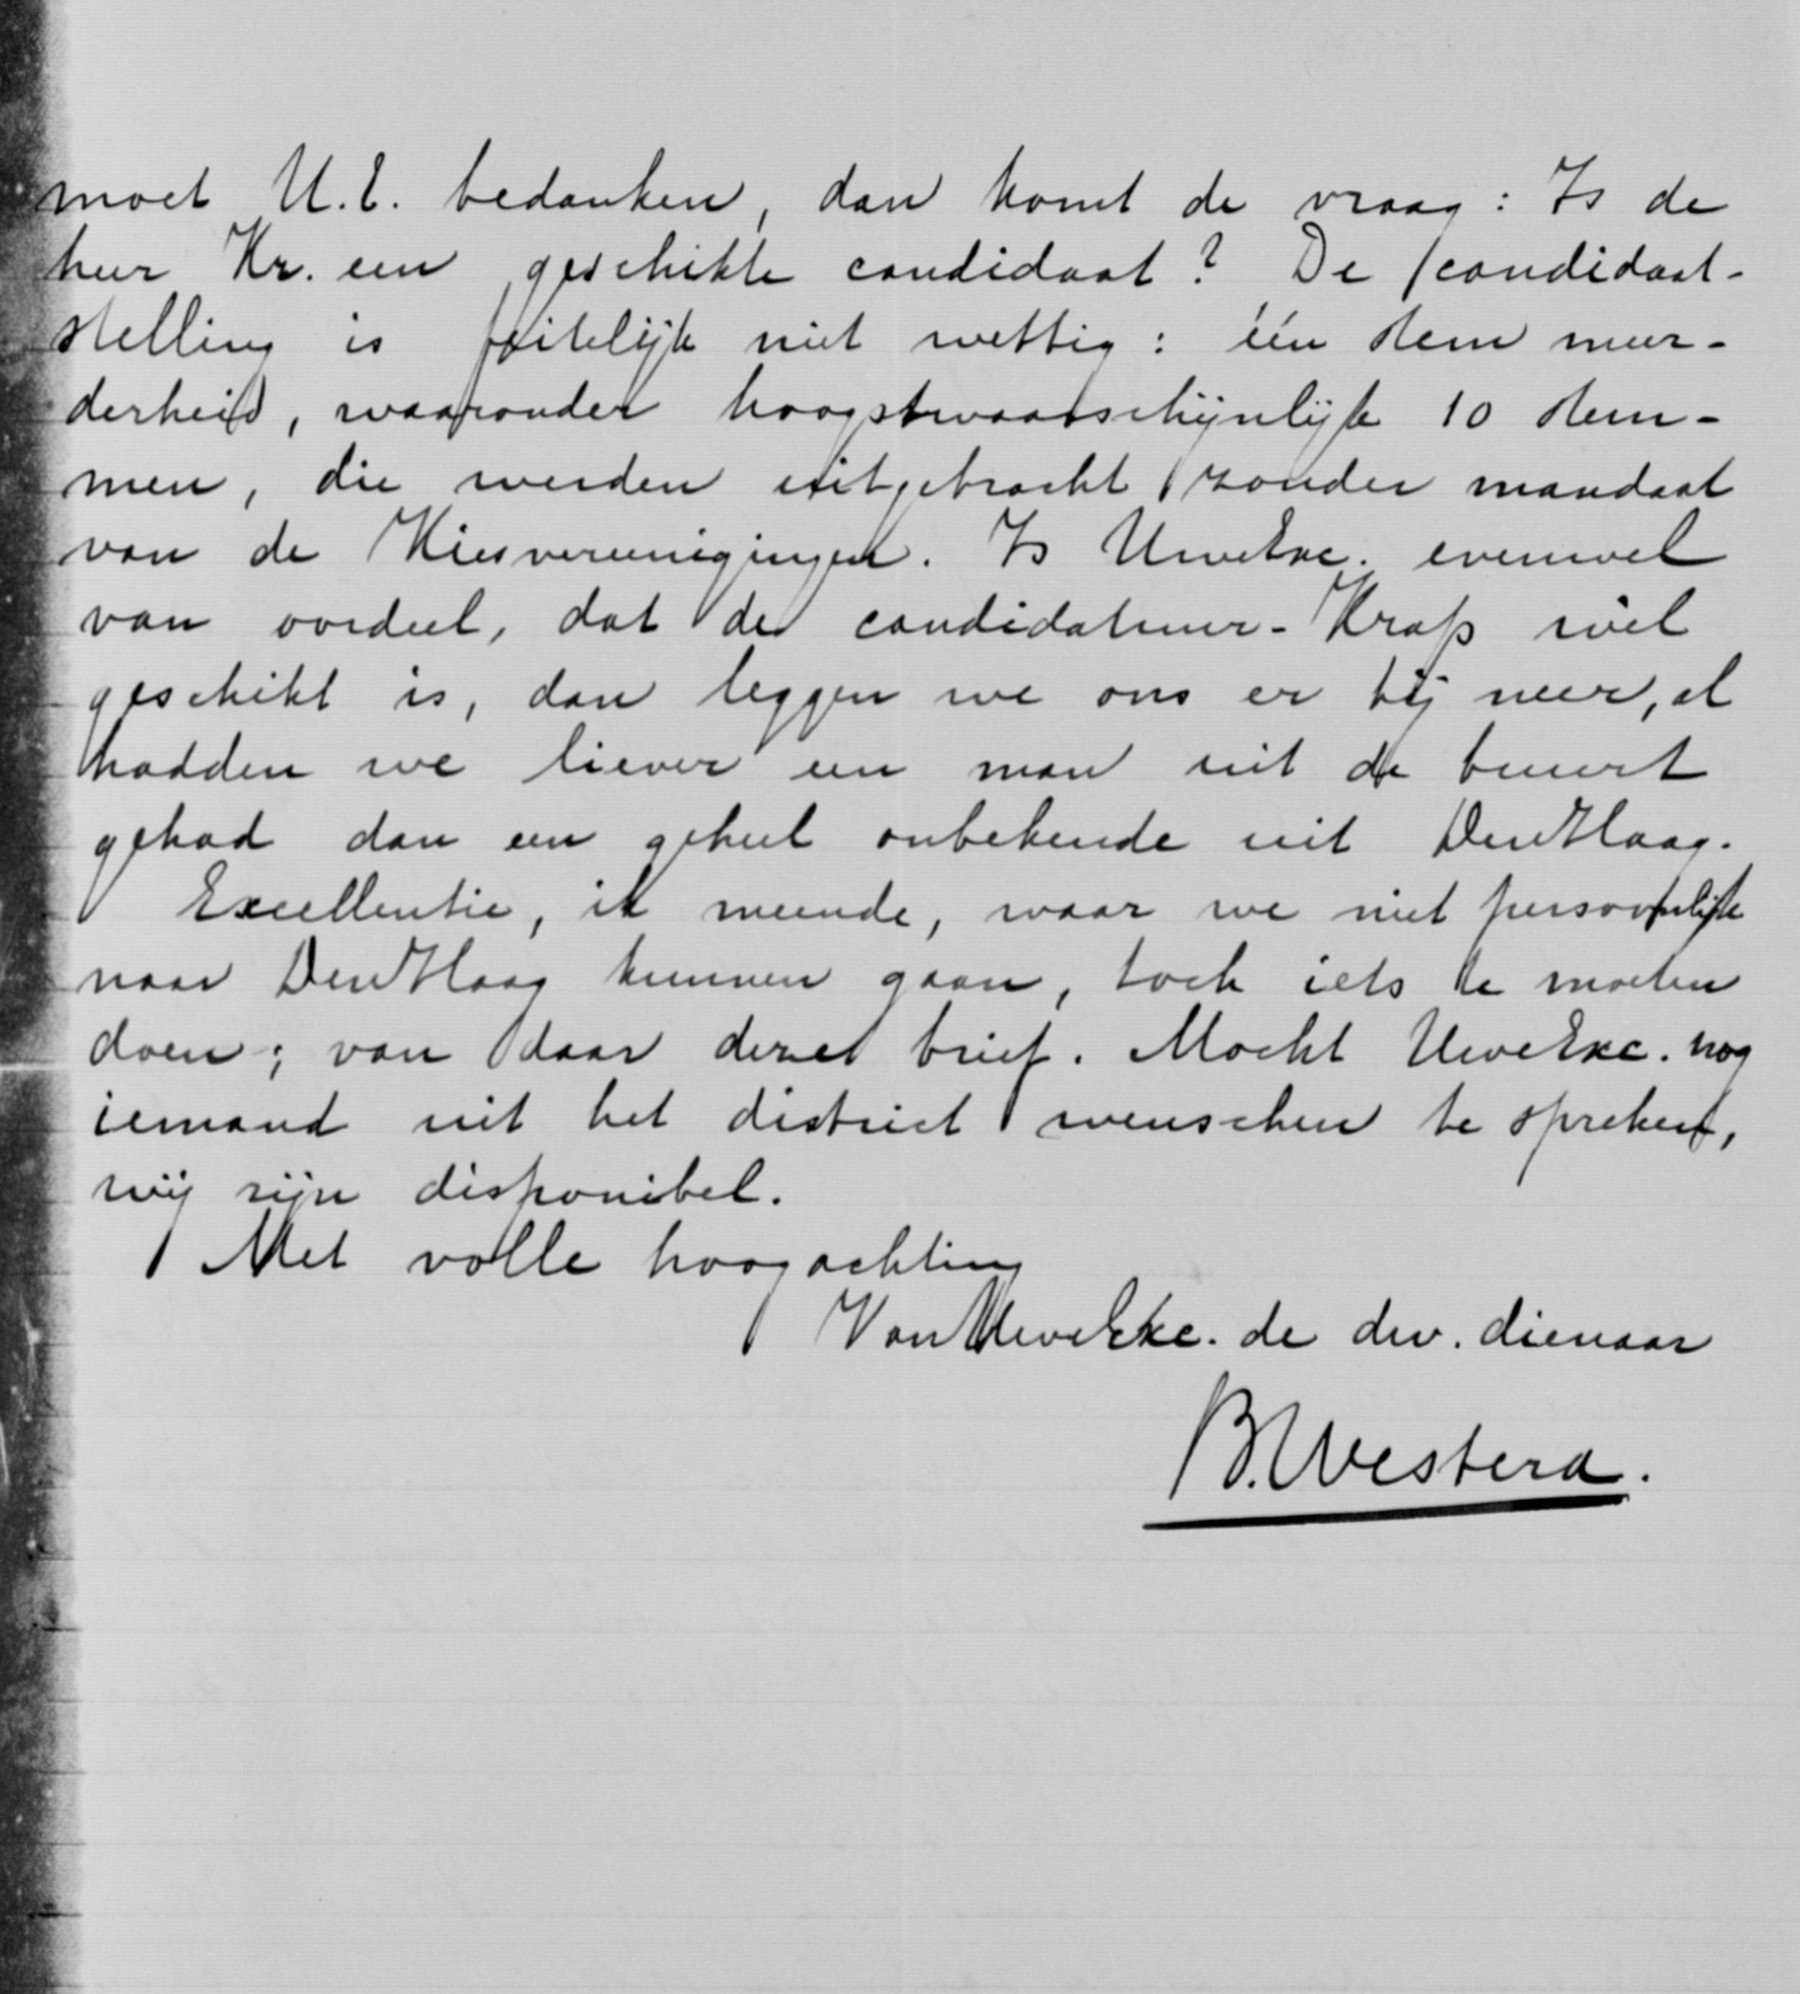 moet U.E. bedanken, dan komt de vraag: Is de
heer Kr. een geschikte candidaat? De candidaat-
stelling is feitelijk niet wettig: één stem meer-
derheid, waaronder hoogstwaarschijnlijk 10 stem-
men, die werden uitgebracht zonder mandaat
van de Kiesvereenigingen. Is UweExc. evenwel
van oordeel, dat de candidatuur-Kraß wèl
geschikt is, dan leggen we ons er bij neer, al
hadden we liever een man uit de buurt
gehad dan een geheel onbekende uit Den Haag.
Excellentie, ik meende, waar we niet persoonlijk
naar Den Haag kunnen gaan, toch iets te moeten
doen; van daar dezen brief. Mocht UweExc. nog
iemand uit het district wenschen te spreken,
wij zijn disponibel.
Met volle hoogachting
Van UweExc. de dw. dienaar
B. Westera.